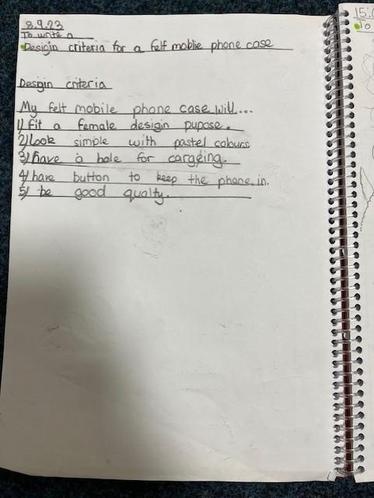 8.9.23
To write a
Desigin criteria for a felf moblie phone case
Desgin criteria
My felt mobile phone case will...
1) Fit a female desigin pupose.
2) Look simple with pastel colours
3) have a hole for cargeing.
4) have button to keep the phone in.
5) be good qualty.
15.
To